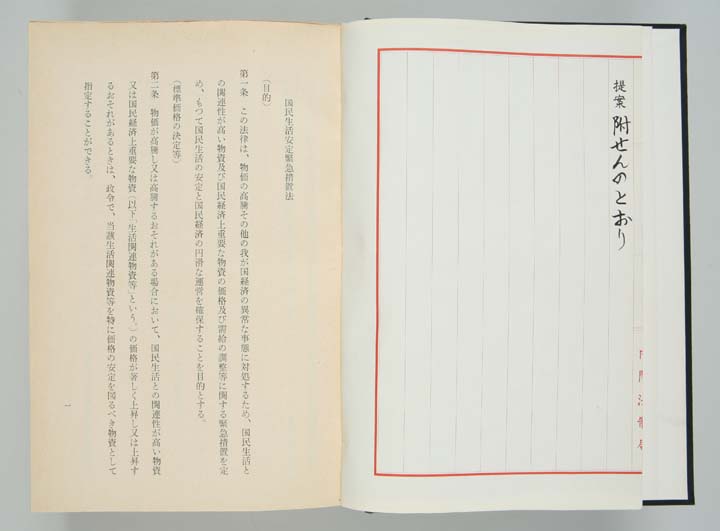 提案 附せんのとおり
内閣法制局
国民生活安定緊急措置法
(目的)
第一条 この法律は、物価の高騰その他の我が国経済の異常な事態に対処するため、国民生活と
の関連性が高い物資及び国民経済上重要な物資の価格及び需給の調整等に関する緊急措置を定
め、もつて国民生活の安定と国民経済の円滑な運営を確保することを目的とする。
(標準価格の決定等)
第二条 物価が高騰し又は高騰するおそれがある場合において、国民生活との関連性が高い物資
又は国民経済上重要な物資(以下「生活関連物資等」という。)の価格が著しく上昇し又は上昇す
るおそれがあるときは、政令で、当該生活関連物資等を特に価格の安定を図るべき物資として
指定することができる。
一